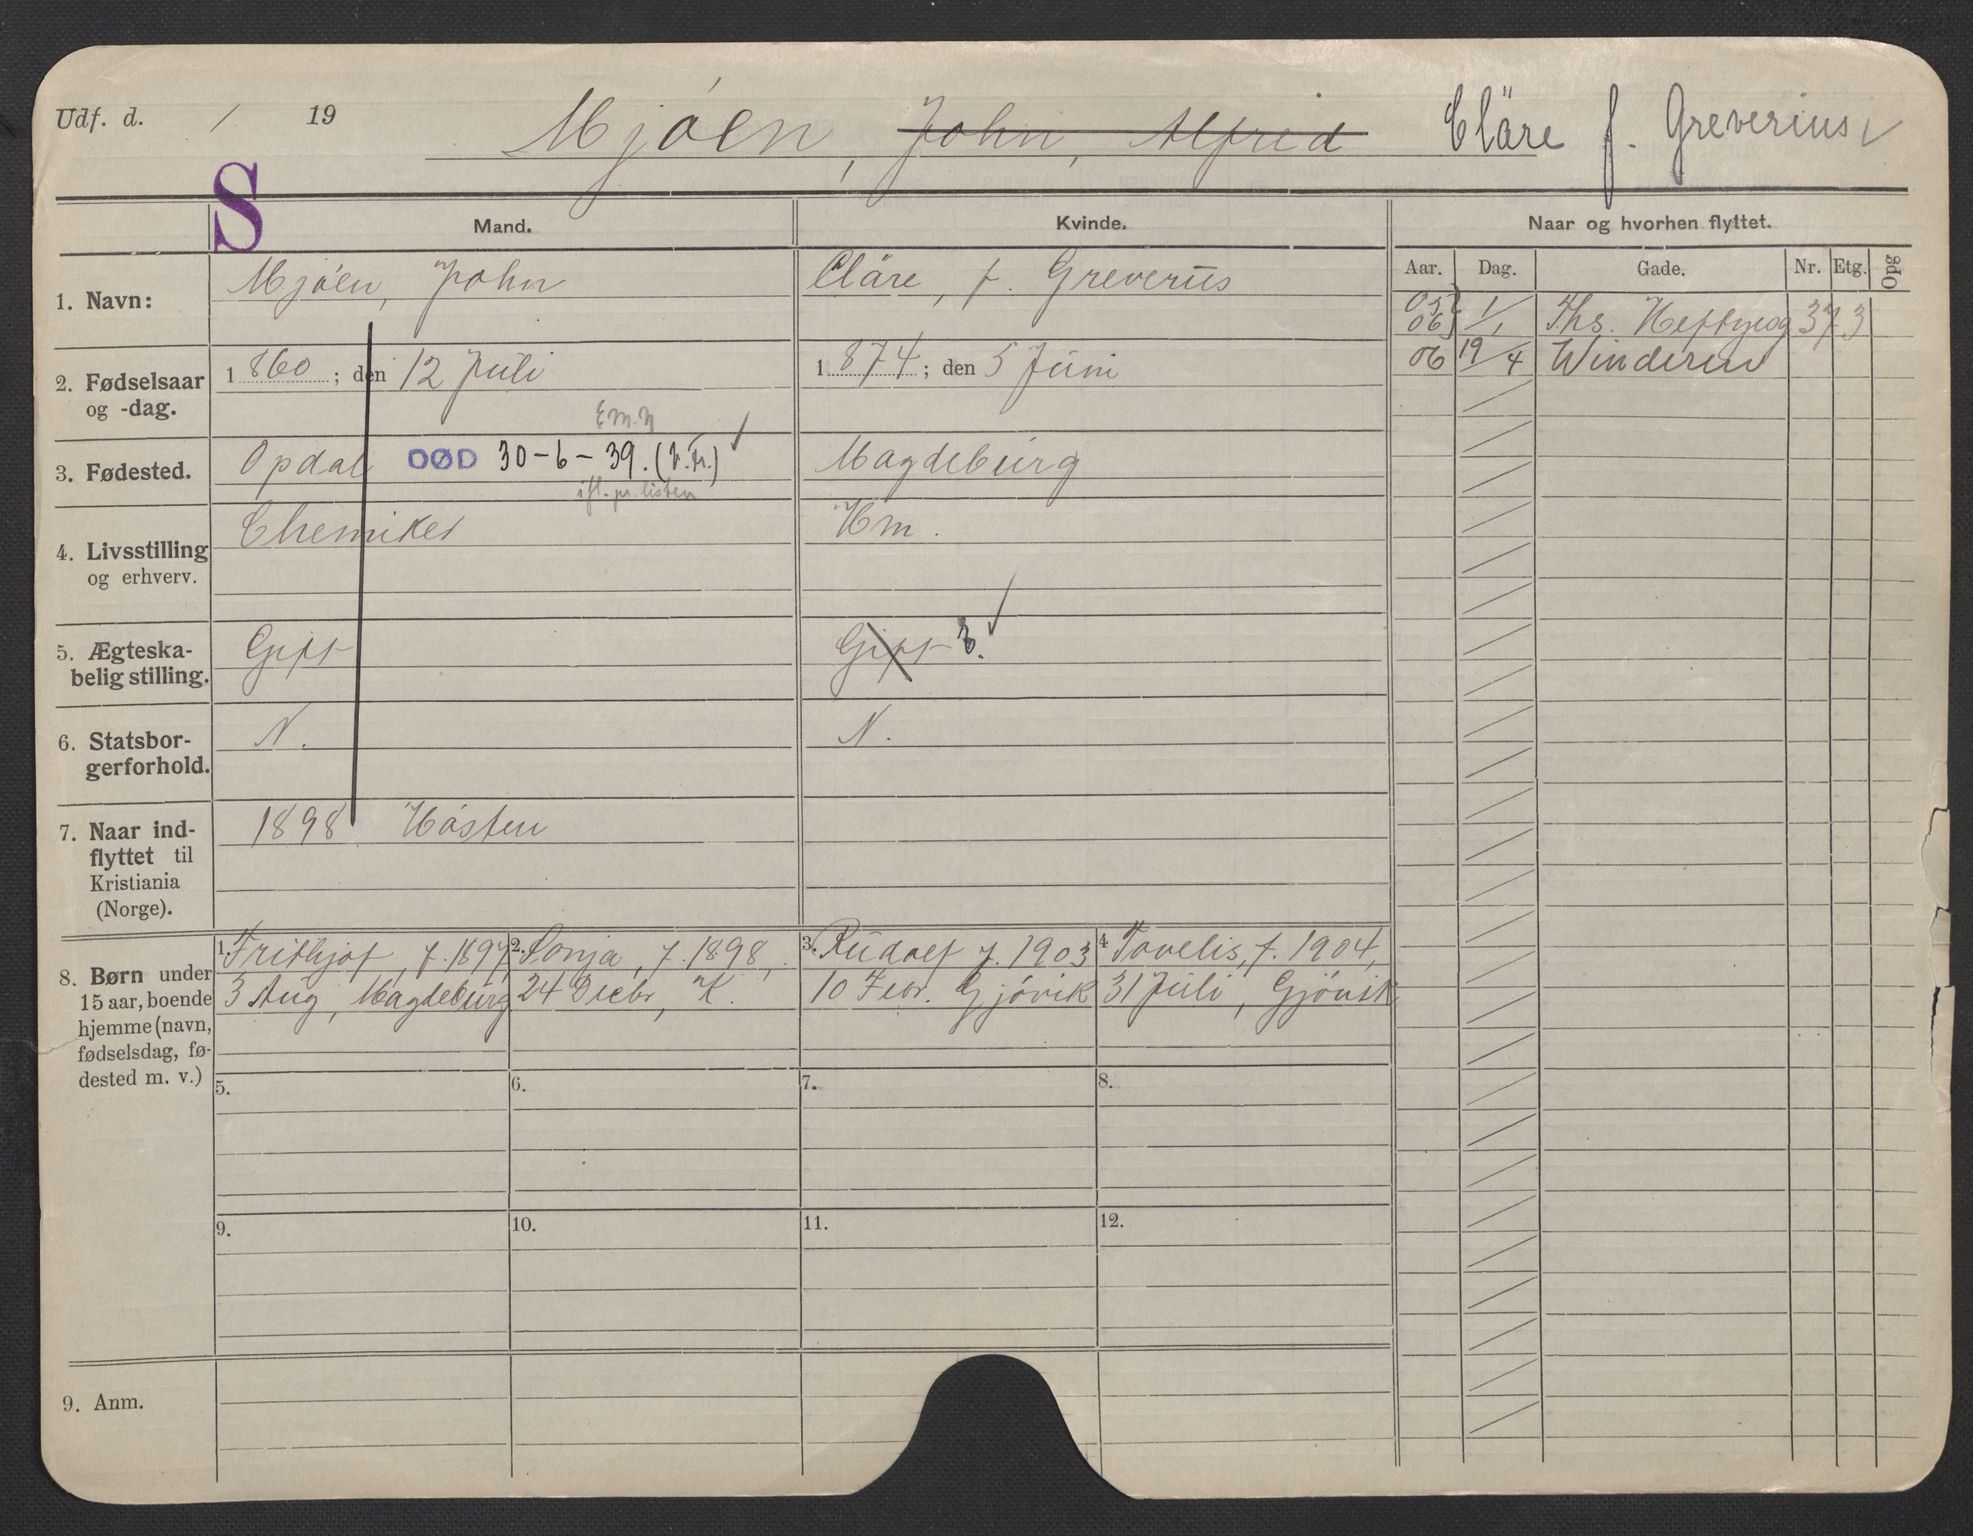 Udf. d. / 19 Mjöen, John, Alfred Cläre f. Greverius
S
Mand. Kvinde. Naar og hvorhen flyttet.
Aar. Dag. Gade. Nr. Etg. Opg
1. Navn: Mjöen, John Cläre, f. Greverüs
05 06 1/1 Ths. Heftyesg 37 3
06 19/4 Winderen
2. Fødselsaar og -dag. 1860; den 12 Juli 1874; den 5 Juni
E.M.N
3. Fødested. Opdal DØD 30-6-39. Magdeburg
ifl. pr. listen
4. Livsstilling og erhverv. Chemiker Hm.
5. Ægteska-
belig stilling. Gift Gift E.
6. Statsbor-
gerforhold. N. N.
7. Naar ind-
flyttet til
Kristiania
(Norge).
1898 Hösten
8. Børn under
15 aar, boende
hjemme (navn,
fødselsdag, fø-
dested m. v.)
1. Frithjof, f. 1897,
3 Aug, Magdeburg
2. Sonja, f. 1898,
24 Decbr, K.
3. Rudolf f. 1903
10 Febr. Gjövik
4 Tovelis, f. 1904,
31 Juli, Gjövik
5. 6. 7. 8.
9. 10. 11. 12.
9. Anm.